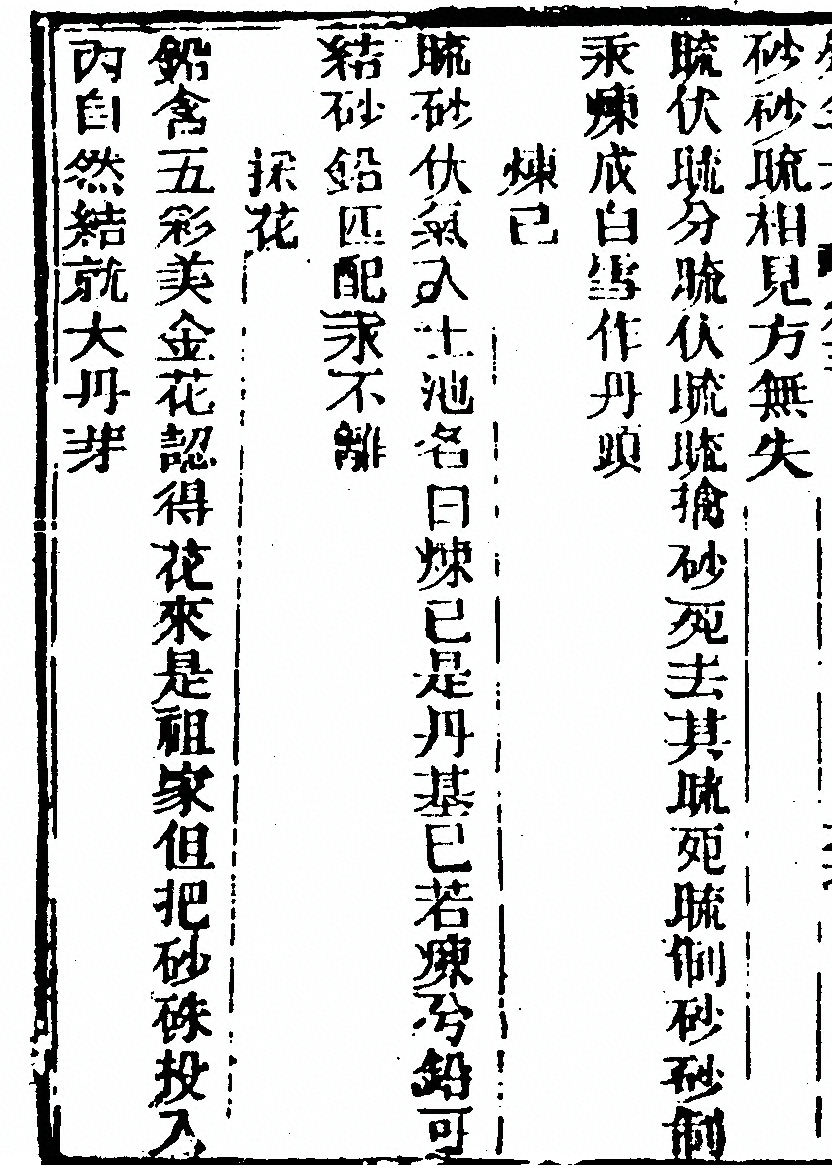 砂砂硫相見方無失
硫伏硫分硫伏硫硫擒砂死去其硫死硫制砂砂制
汞煉成白雪作丹頭
煉己
硫砂伏氣入土池名曰煉己是丹基己若煉兮鉛可
結砂鉛匹配汞不離
採花
鉛含五彩美金花認得花來是祖家但把砂硃投入
內自然結就大丹芽